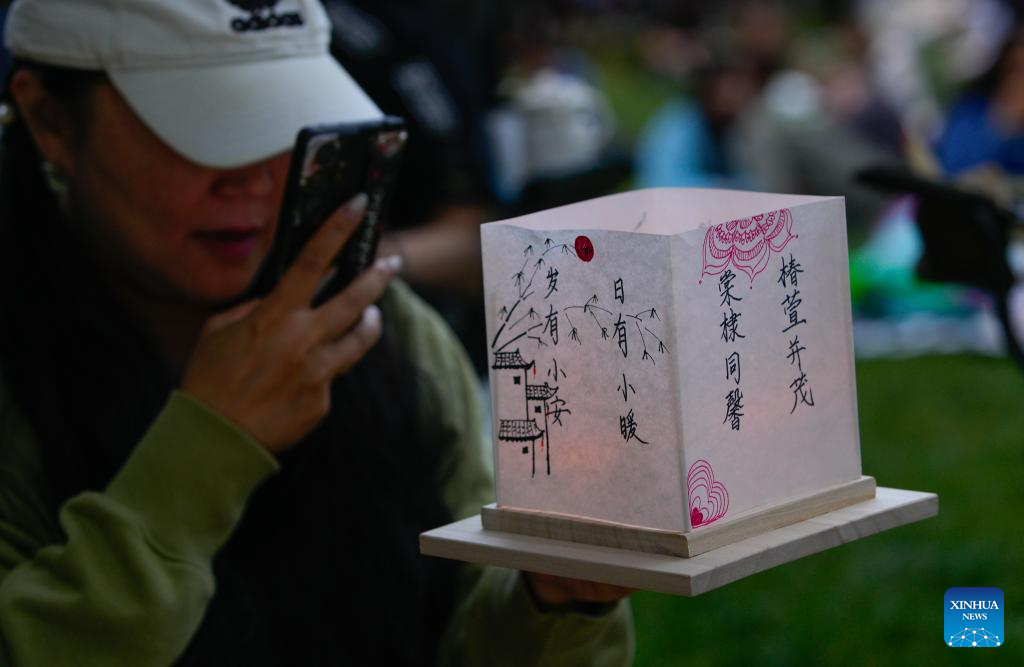 adidas
日有小暖
岁有小安
椿萱并茂
棠棣同馨
XINHUA
NEWS